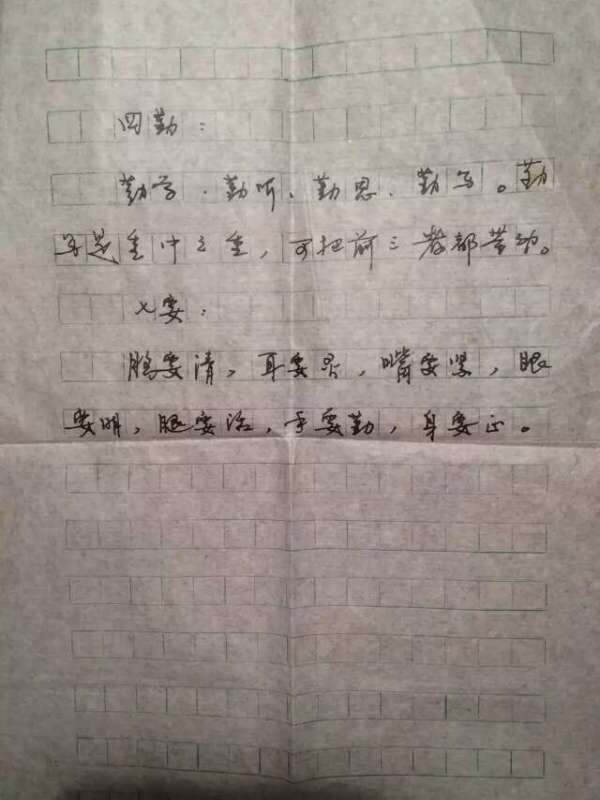 四勤：
勤学、勤听、勤思、勤写。勤
写是重中之重，可把前三者都带动。
七要：
脑要清，耳要灵，嘴要紧，眼
要明，腿要活，手要勤，身要正。